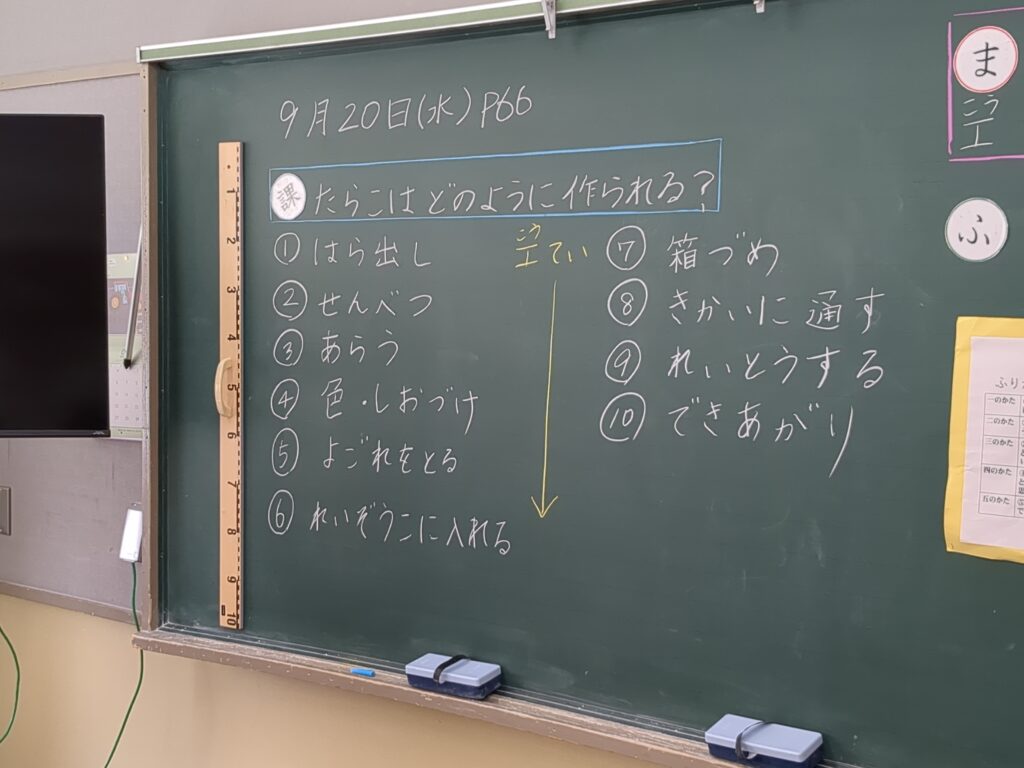 9月20日(水) P66
課 たらこはどのように作られる?
① はら出し
② せんべつ
③ あらう
④ 色・しおづけ
⑤ よごれをとる
⑥ れいぞうこに入れる
こう
工てい
⑦ 箱づめ
⑧ きかいに通す
⑨ れいとうする
⑩ できあがり
1
2
3
4
5
6
7
8
9
10
ま
こう
工
ふ
ふり
一のかた
二のかた
三のかた
四のかた
五のかた